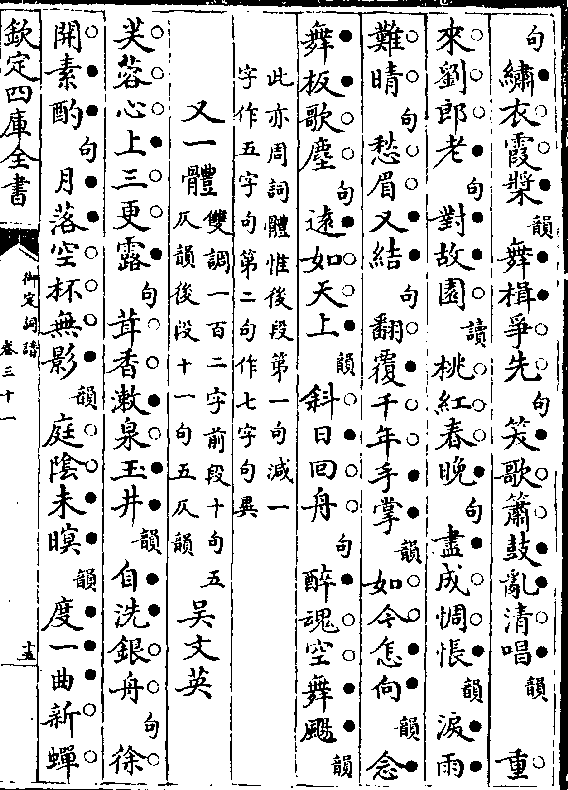 句 繡衣霞槳 韻 舞楫爭先 句 笑歌簫鼓亂清唱 韻 重
來劉郎老 句 對故園 讀 桃紅春晚 句 盡成惆悵 韻 淚雨
難晴 句 愁眉又結 句 翻覆千年手掌 韻 如今怎向 韻 念
舞板歌塵 句 遠如天上 韻 斜日回舟 句 醉魂空舞颺 韻
此亦周詞體惟後段第一句減一
字作五字句第二句作七字句異
又一體 雙調一百二字前段十句五
仄韻後段十一句五仄韻 吳文英
芙蓉心上三更露 句 茸香潄泉玉井 韻 自洗銀舟 句 徐
開素酌 句 月落空杯無影 韻 庭陰未暝 韻 度一曲新蟬
欽定四庫全書
御定詞譜
卷三十一